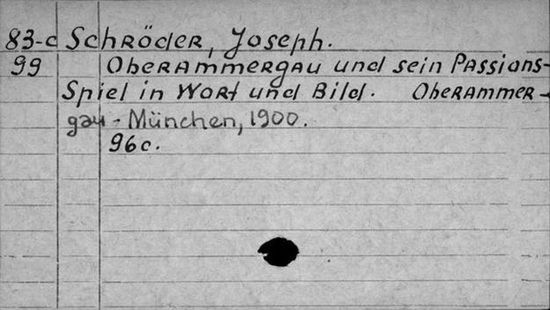 83-c Schröder, Joseph.
99 Oberammergau und sein Passions-
Spiel in Wort und Bild. Oberammer-
gau - München, 1900.
96c.